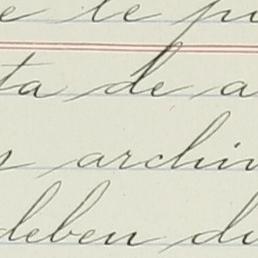 e le pu
ta de a
s archiv
deben di